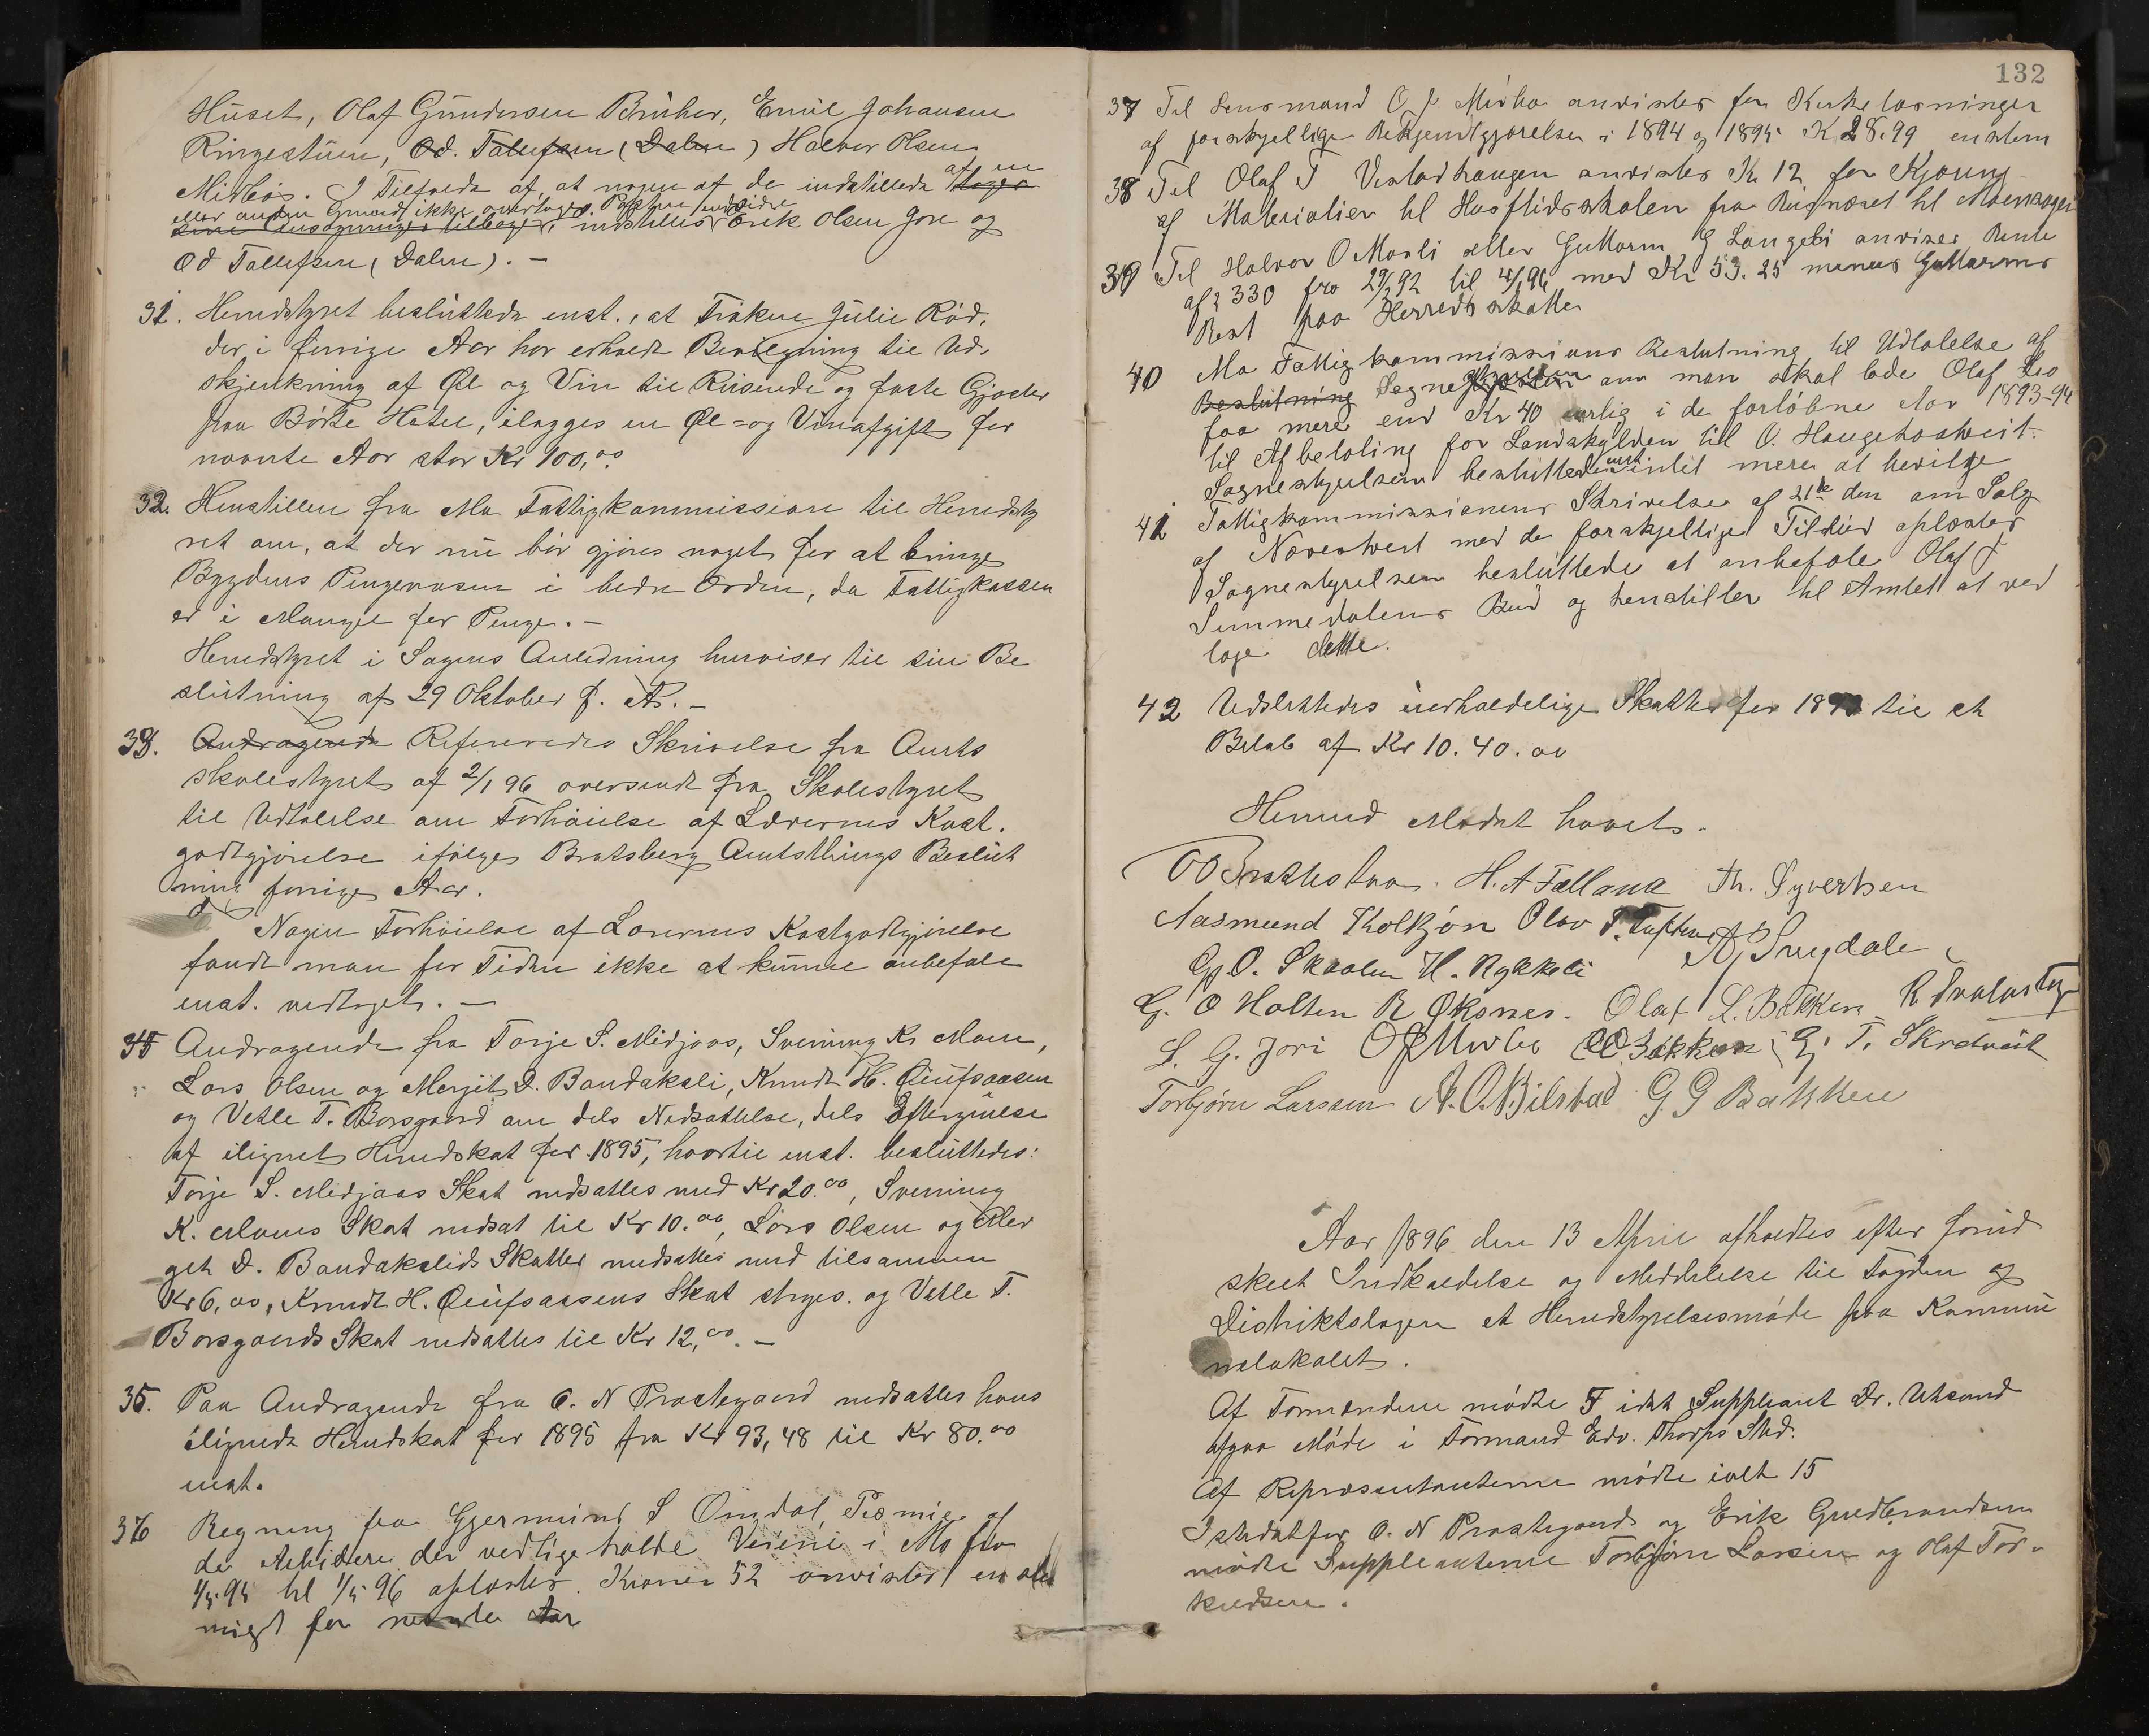 Huset, Olaf Gundersen Bruher, Emil Johansen
Ringestuen, Od. Tallefsen (Dalen) Halvor Olsen
Midbø. I Tilfælde af, at nogen af de indstillede af en tager
eller anden Grund ikke overtager Posten indvidre
sine Ansøgninger tilbage, indstilles Erik Olsen Jore og
Od Tallefsen (Dalen). —
31. Herredstyret besluttede enst., at Frøken Julie Rød,
der i forrige Aar har erholdt Bevilgning til Ud-
skjenkning af Øl og Vin til Reisende og faste Gjæster
paa Børte Hotel, ilægges en Øl- og Vinafgift for
nævnte Aar stor Kr 100,00
32. Henstillen fra Mo Fattigkommission til Herredsty
ret om, at der nu bør gjøres noget for at bringe
Bygdens Pengevæsen i bedre Orden, da Fattigkassen
er i Mangel for Penge. —
Herredstyret i Sagens Anledning henviser til sin Be
slutning af 29 Oktober f. A. —
33. Andragende Refereredes Skrivelse fra Amts
skolestyret af 2/1 96 oversendt fra Skolestyret
til Udtalelse om Forhøielse af Lærernes Kost.
godtgjørelse ifølge Bratsberg Amtsthings Beslut
ning forrige Aar.
Nogen Forhøielse af Lærernes Kostgodtgjørelse
fandt man for Tiden ikke at kunne anbefale
enst. vedtaget. —
34 Andragende fra Torje S. Midjaas, Svenung K. Moen,
Lars Olsen og Merjit D. Bandaksli, Knudt H.
og Vetle T. Borsgaard om dels Nedsættelse, dels Eftergivelse
af ilignet Herredskat for 1895, hvortil enst. besluttedes:
Torje S. Midjaas Skat nedsattes med Kr 20.00, Svenung
K. Moens Skat nedsat til Kr 10.00, Lars Olsen og Mer
git D. Bandakslids Skatter nedsattes med tilsammen
Kr 6,00, Knudt H. Skat stryges. og Vetle T.
Borsgaards Skat nedsattes til Kr 12,00. —
35. Paa Andragende fra O. N Præstegaard nedsattes hans
ilignede Herredskat for 1895 fra Kr 93,48 til Kr 80.00
enst.
36 Regning fra Gjermund S Omdal, Præmie af
de Arbeidere der vedligeholdt Veiene i Mo fra
1/5 95 til 1/5 96 oplæstes. Kroner 52 anvistes enstem
migt for
132
37 Til Lensmand O. J. Midbø anvistes for Kirkelæsninger
af forskjellige Bekjendtgjørelser i 1894 og 1895 Kr 28.99 enstem
38 Til Olaf T Vistadhaugen anvistes Kr 12 for Kjøring
af Materialier til Husflidsskolen fra
39 Til Halvor O Mosli eller Guttorm G Langeli anvises Rente
af 330 fra 29/2 92 til 4/1 96 med Kr 53.25 minus Guttorms
Rest paa Herredsskatten
40 Mo Fattigkommissions Beslutning til Udtalelse af
Beslutning Sognestyrelsen om man skal lade Olaf
faa mere end Kr 40 aarlig i de forløbne Aar 1893-94
til Afbetaling for Landskylden til O. Haugetoshveit.
Sognestyrelsen besluttede enst intet mere at bevilge
41 Fattigkommissionens Skrivelse af 21de den om Salg
af Næveshveit med de forskjellige Tilbud oplæstes
Sognestyrelsen besluttede at anbefale Olaf J
Simmedalens Bud og henstiller til Amtet at ved
tage dette.
42 Vedsattedes uerholdelige Skatter for 189 til et
Beløb af Kr 10.40.00
Hermed Mødet hævet.
O O Brattestaa H. A Felland Th. Syvertsen
Aasmund Kolkjøn Olav T. Tuften A Smedale
G O. Skaalen H. Rykkeli
G. O Holten R Øksnes. Olaf L. Bakken
L. G. Jori O J Midbø O O Bakken G. T. Skredveit
Torbjørn Larssen A. O. Bilstad G. G Bakken
Aar 1896 den 13 April afholdtes efter forud
skeet Indkaldelse og Meddelelse til Fogden og
Distriktslægen et Herredstyrelsesmøde paa Kommu
nelokalet.
Af Formændene mødte 5 idet Suppleant Dr. Utsond
afgav Møde i Formand Edv. Thorps Sted.
Af Repræsentanterne mødte ialt 15
Istedetfor O. N Præstegaard og Erik Gudbrandsen
mødte Suppleanterne Torbjørn Larsen og Olaf Tor-
kildsen.